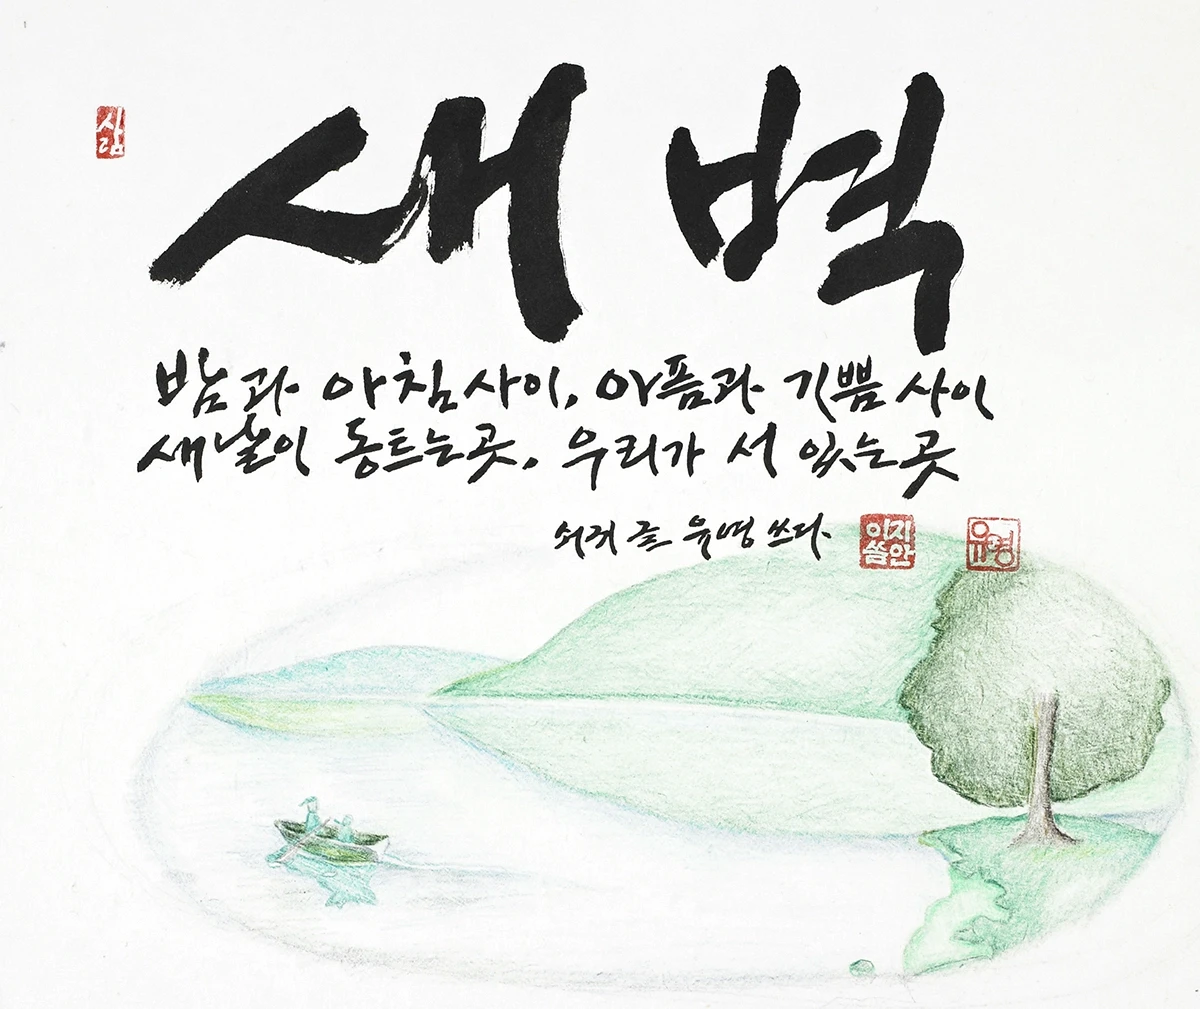 새벽
삶
밤과 아침 사이, 아픔과 기쁨 사이
새날이 동트는 곳, 우리가 서 있는 곳
쇠귀 글 유명 쓰다
이지
씀안
유
명